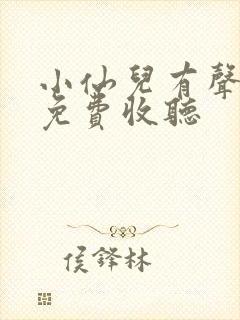 小仙兒有聲
免費收聽
侯鋒林